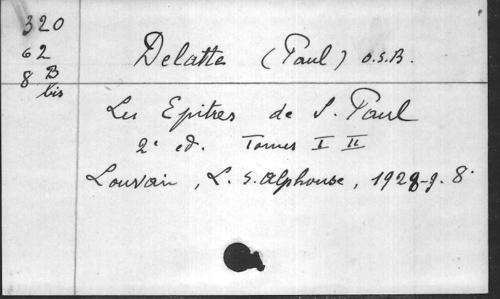 320
62
8 B
bis
Delatte (Paul) O.S.B.
Les Epitres de S. Paul
2e ed. Tomes I II
Louvain, L. S. Alphonse, 1928-9. 8°